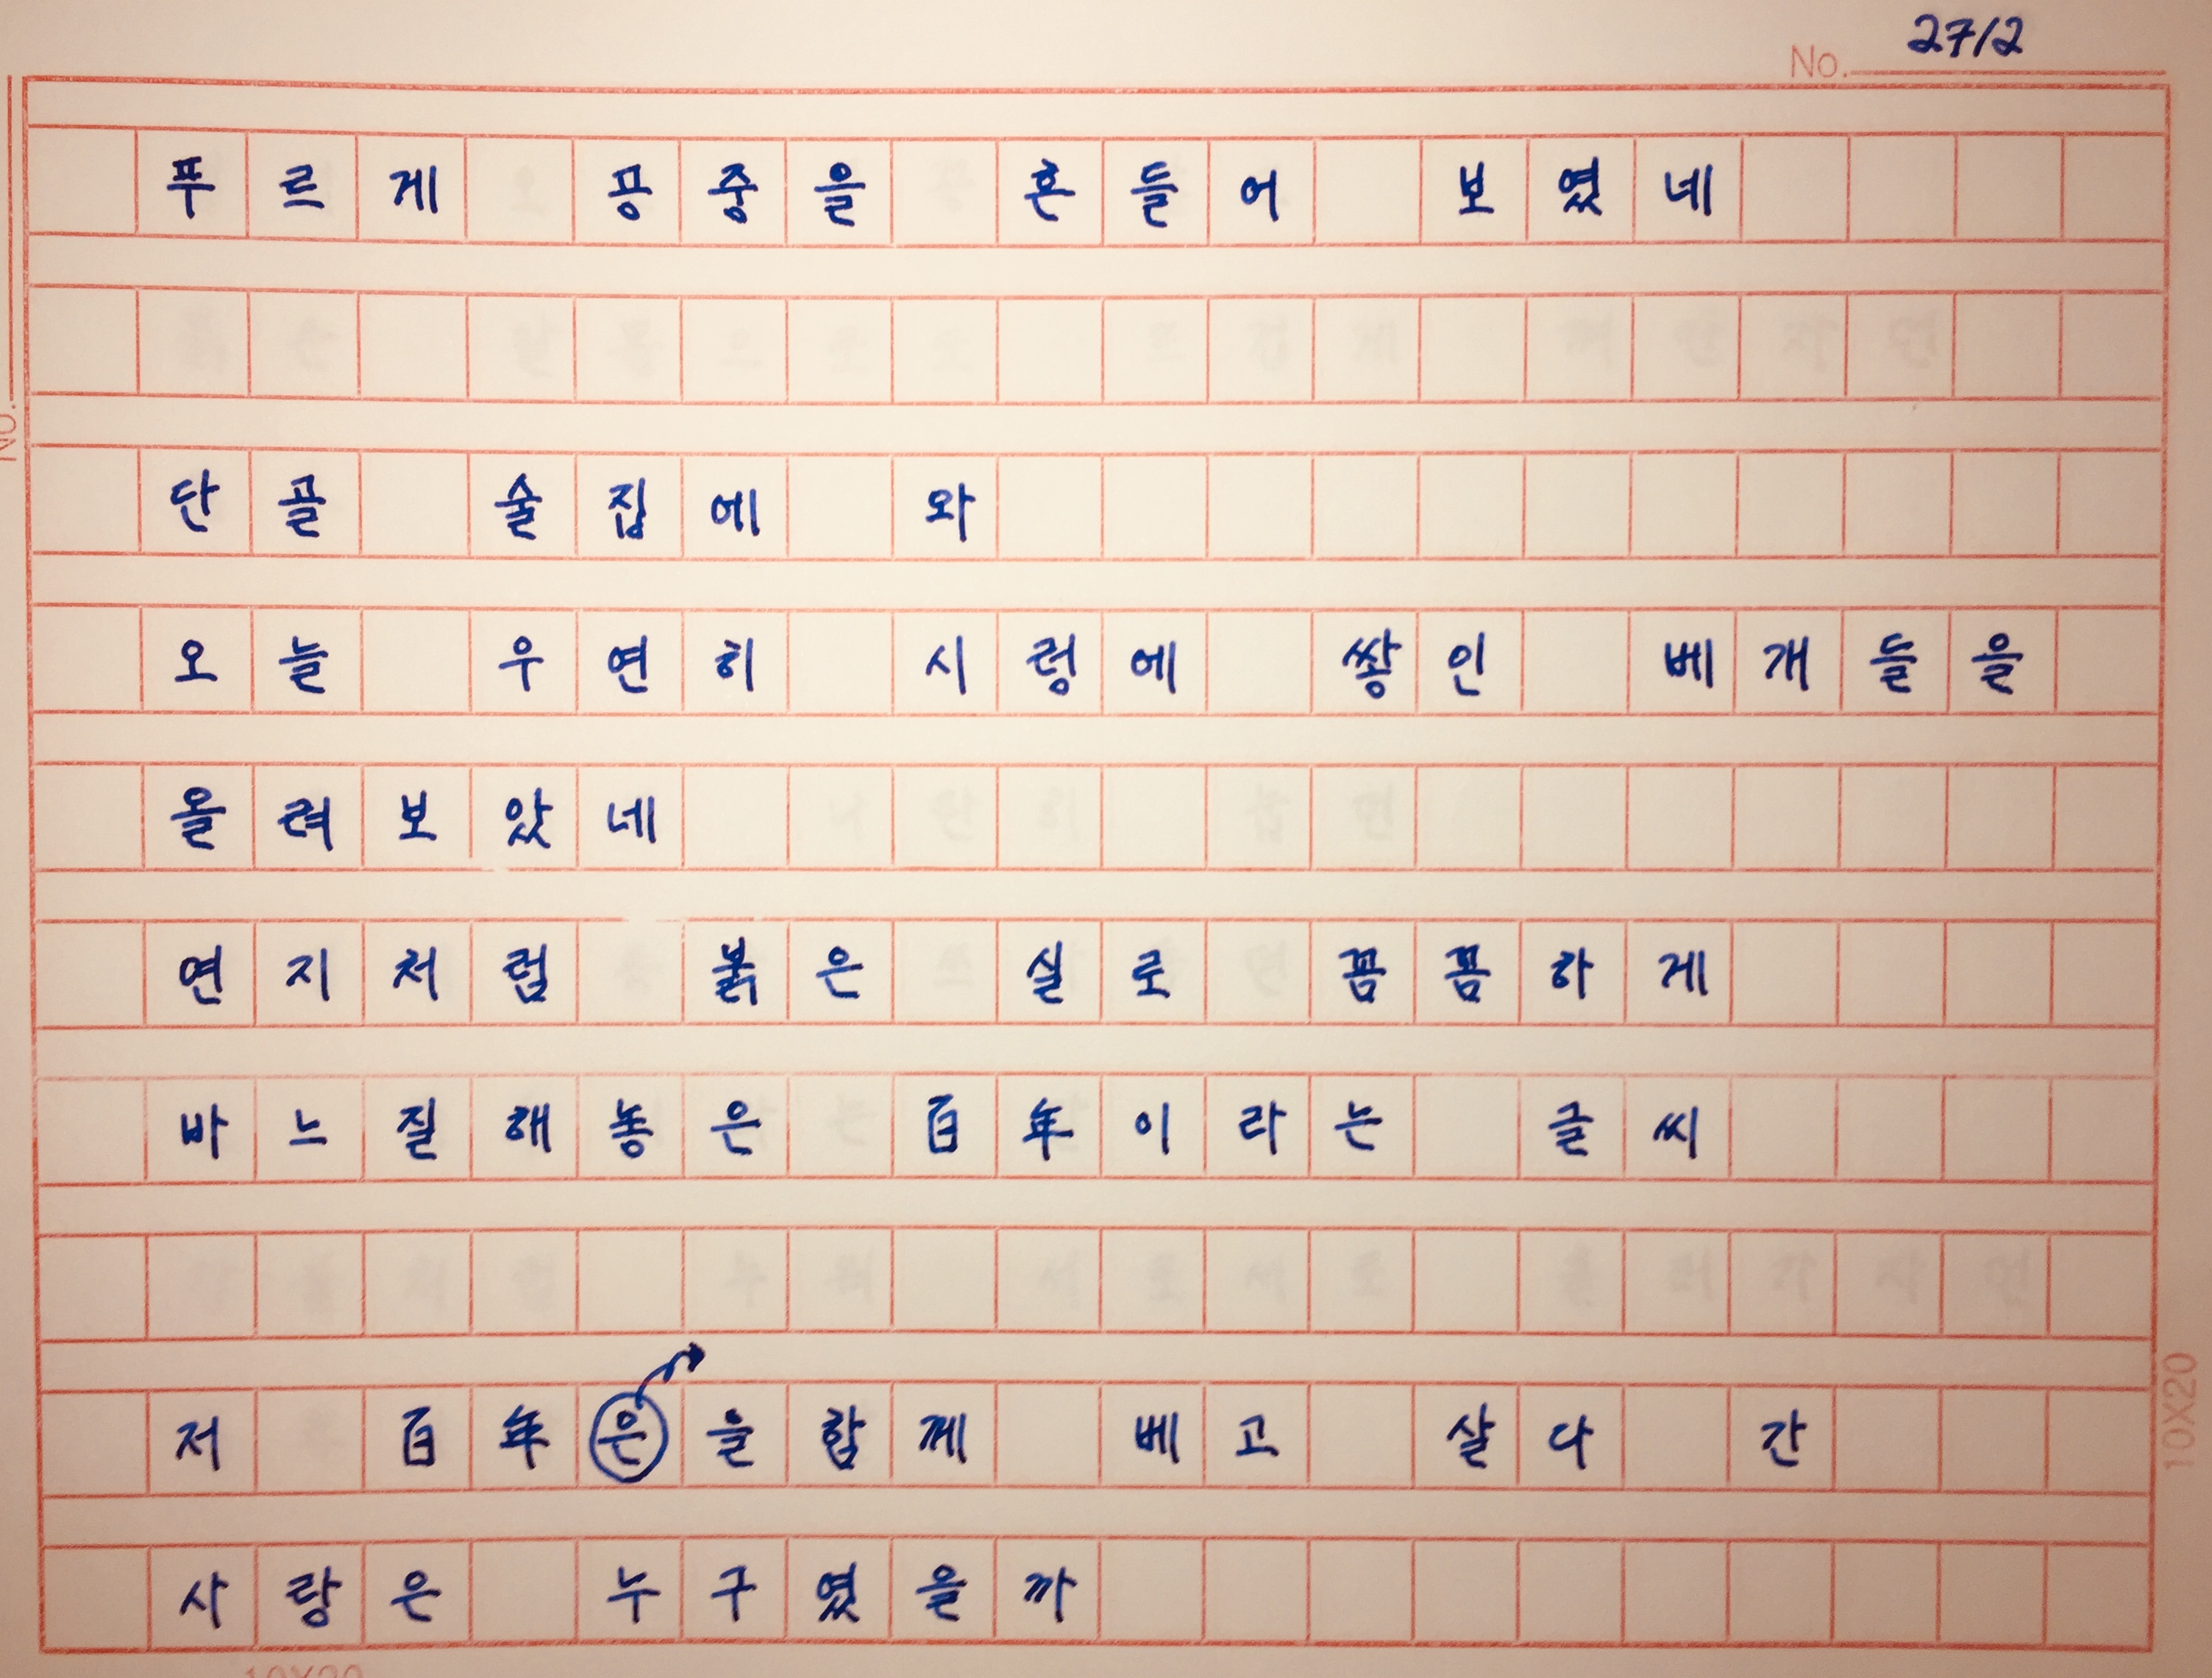 No. 27/2
푸르게 공중을 흔들어 보였네
단골 술집에 와
오늘 우연히 시렁에 쌓인 베개들을
올려보았네
연지처럼 붉은 실로 꼼꼼하게
바느질해놓은 百年이라는 글씨
저 百年은을함께 베고 살다 간
사랑은 누구였을까
No.
10X20
10X20